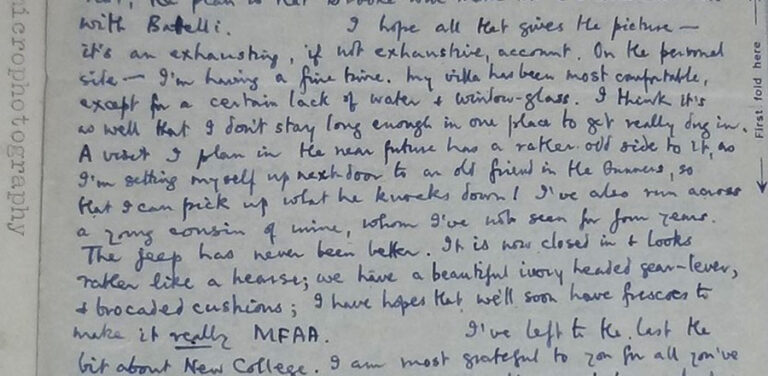 the plan is that
with Batelli. I hope all that gives the picture —
it's an exhausting, if not exhaustive, account. On the personal
side — I'm having a fine time. My villa has been most comfortable,
except for a certain lack of water & window-glass. I think it's
as well that I don't stay long enough in one place to get really dug in.
A visit I plan in the near future has a rather odd side to it, as
I'm setting myself up next door to an old friend in the Gunners, so
that I can pick up what he knocks down! I've also run across
a young cousin of mine, whom I've not seen for four years.
The jeep has never been better. It is now closed in & looks
rather like a hearse; we have a beautiful ivory headed gear-lever,
& brocaded cushions; I have hopes that we'll soon have frescoes to
make it really MFAA. I've left to the last the
bit about New College. I am most grateful to you for all you've
First fold here
microphotography